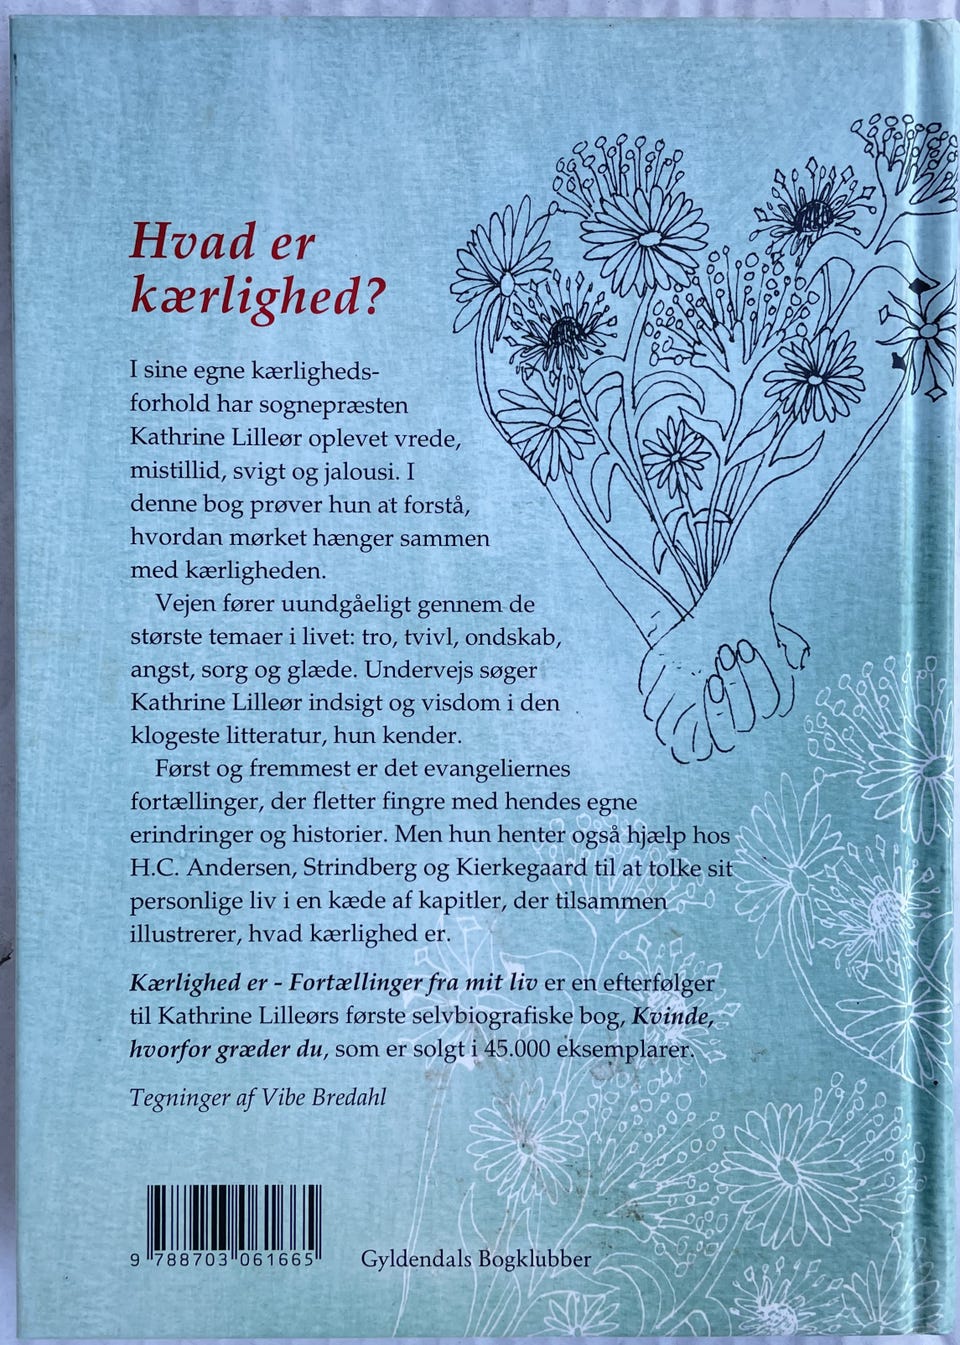 Hvad er
kærlighed?
I sine egne kærligheds-
forhold har sognepræsten
Kathrine Lilleør oplevet vrede,
mistillid, svigt og jalousi. I
denne bog prøver hun at forstå,
hvordan mørket hænger sammen
med kærligheden.
Vejen fører uundgåeligt gennem de
største temaer i livet: tro, tvivl, ondskab,
angst, sorg og glæde. Undervejs søger
Kathrine Lilleør indsigt og visdom i den
klogeste litteratur, hun kender.
Først og fremmest er det evangeliernes
fortællinger, der fletter fingre med hendes egne
erindringer og historier. Men hun henter også hjælp hos
H.C. Andersen, Strindberg og Kierkegaard til at tolke sit
personlige liv i en kæde af kapitler, der tilsammen
illustrerer, hvad kærlighed er.
Kærlighed er - Fortællinger fra mit liv er en efterfølger
til Kathrine Lilleørs første selvbiografiske bog, Kvinde,
hvorfor græder du, som er solgt i 45.000 eksemplarer.
Tegninger af Vibe Bredahl
9 788703 061665
Gyldendals Bogklubber